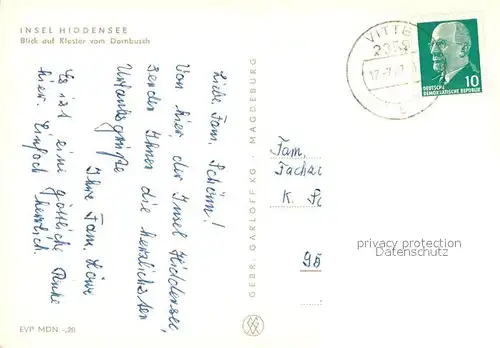 INSEL HIDDENSEE
Blick auf Kloster vom Dornbusch
Liebe Fam. Schünn!
Von hier, der Insel Hiddensee,
senden Ihnen die herzlichsten
Urlaubsgrüße
Ihre Fam.
Es ist eine göttliche Ruhe
hier. Einfach herrlich.
EVP MDN -,20
GEBR. GARLOFF KG. - MAGDEBURG
VITTE
2359
10
DEUTSCHE
DEMOKRATISCHE REPUBLIK
Fam.
K.
privacy protection
Datenschutz